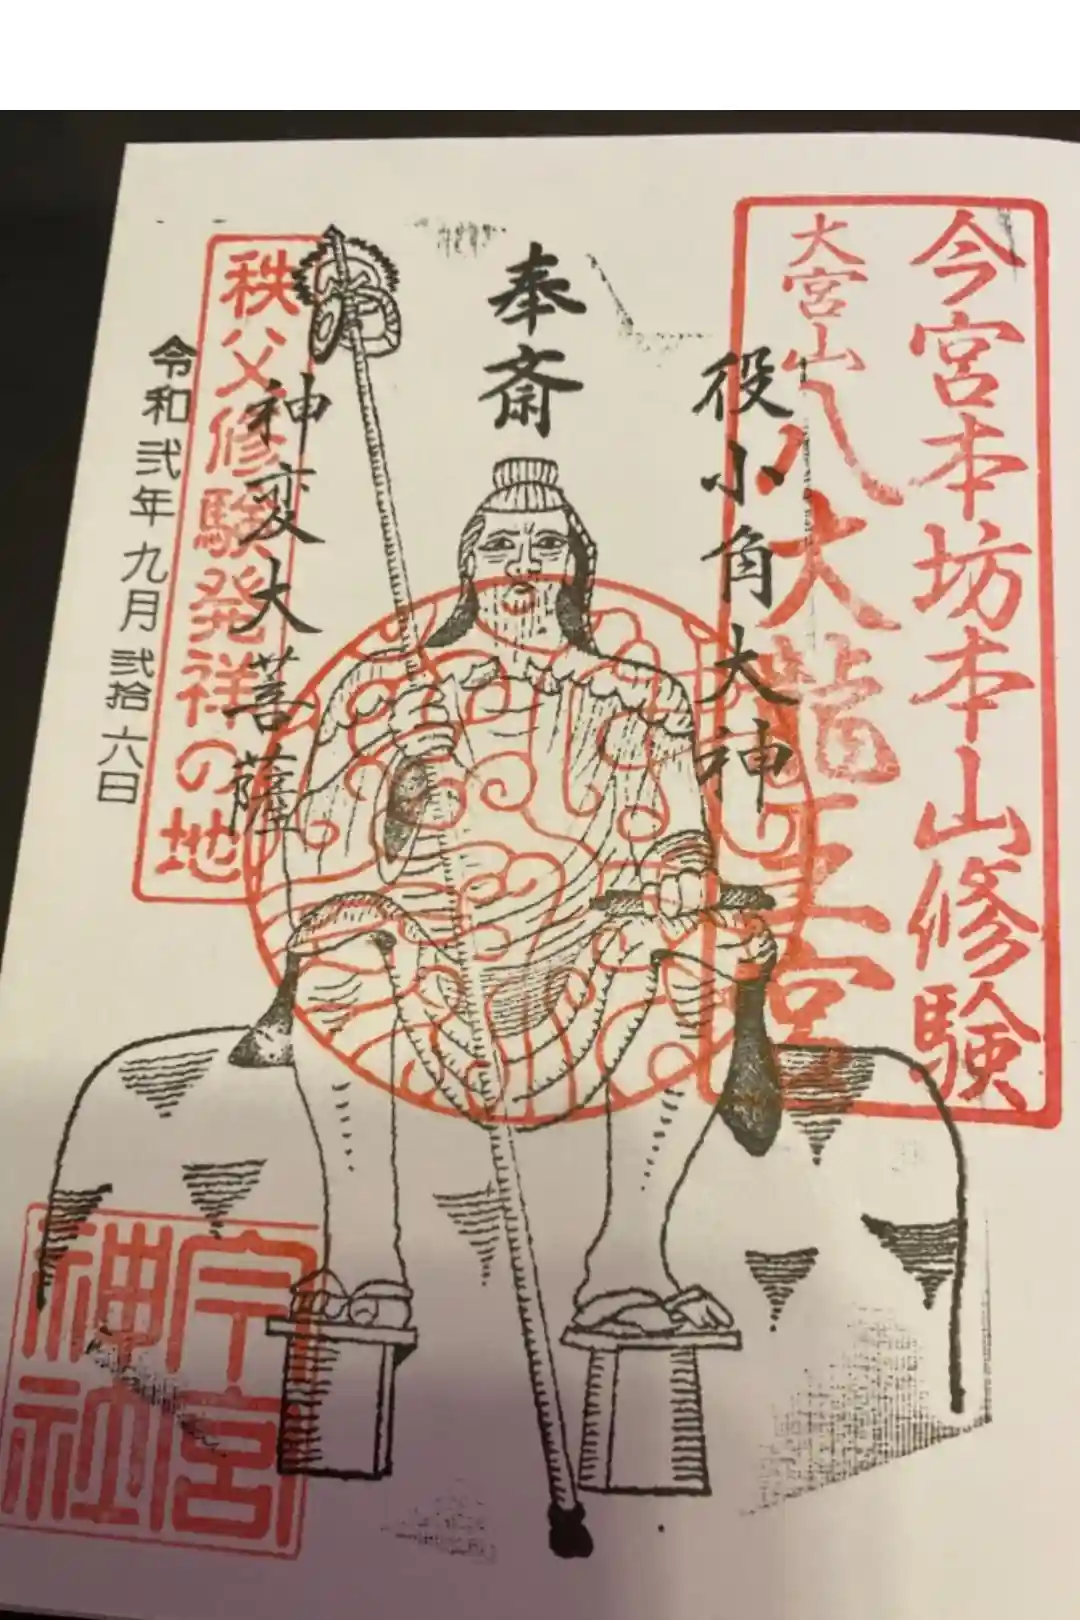 今宮本坊本山修験
大宮山八大龍王宮
役小角大神
奉斎
神変大菩薩
秩父修験発祥の地
令和弐年九月弐拾六日
今宮
神社